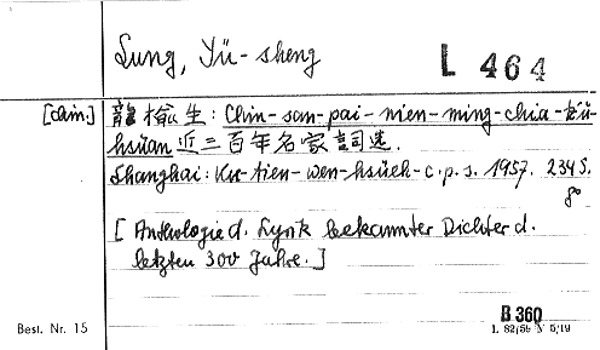 Lung, Yü-sheng
L 464
[chin.] 龍榆生: Chin-san-pai-nien-ming-chia-tz'ŭ-
hsüan 近三百年名家詞选.
Shanghai: Ku-tien-wen-hsüeh-c.p.s. 1957. 234 S.
8°
[Anthologie d. Lyrik bekannter Dichter d.
letzten 300 Jahre.]
B 360
Best. Nr. 15